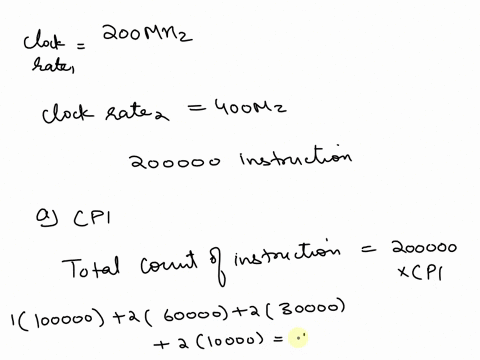 clock rate₁ = 200MHz
clock rate₂ = 400Mz
200000 instruction
a) CPI
Total count of instruction = 200000
×CPI
1(100000) +2( 60000)+2( 30000)
+ 2(10000) =